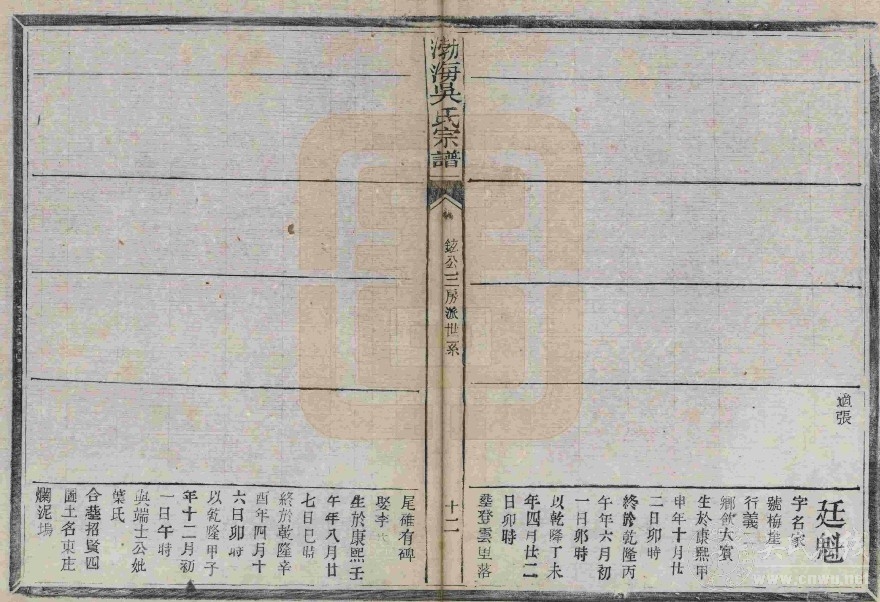 適張
廷魁
字名家
號梅崖
行義二
鄉飲大賓
生於康熙甲
申年十月廿
二日卯時
終於乾隆丙
午年六月初
一日卯時
以乾隆丁未
年四月廿二
日卯時
塟登雲里落
渤海吳氏宗譜
鉉公三房派世系
十二
尾碓有碑
娶李氏
生於康熙壬
午年八月廿
七日巳時
終於乾隆辛
酉年四月十
六日卯時
以乾隆甲子
年十二月初
一日午時
與端士公妣
葉氏
合塟招賢四
圖土名東庄
爛泥塢
www.cnwu.net